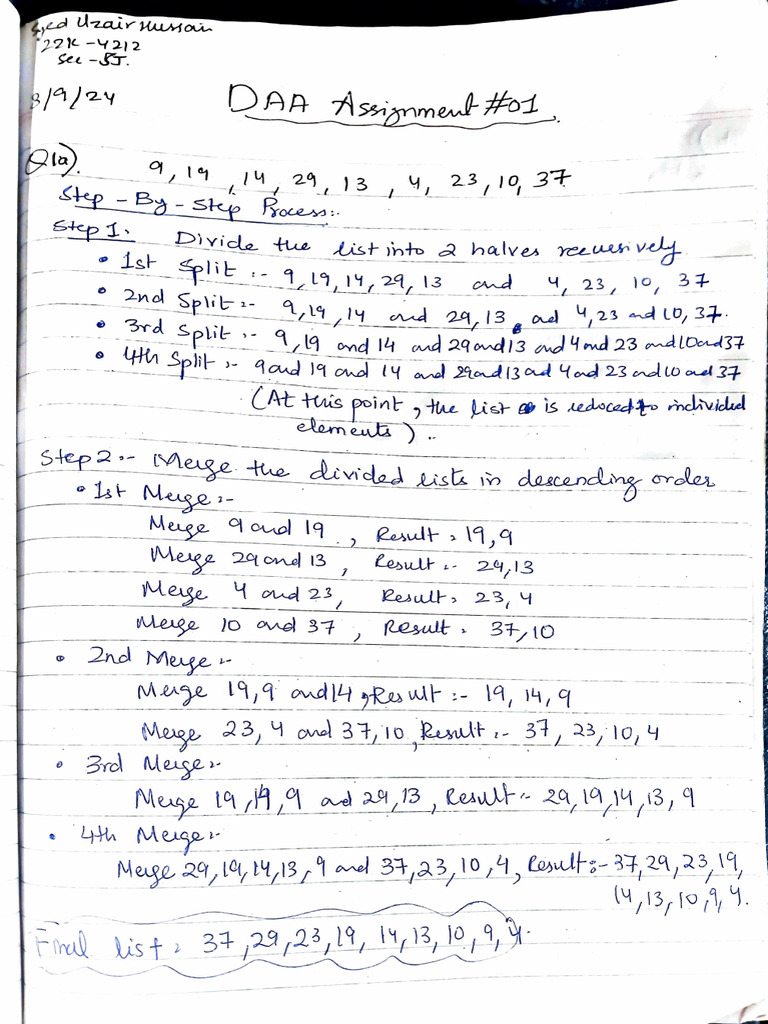 Syed Uzair Hussain
22K-4212
Sec -5J.
3/9/24
DAA Assignment #01.
Q1a). 9, 19, 14, 29, 13, 4, 23, 10, 37
Step-By-Step Process:-
Step 1. Divide the list into 2 halves recursively
• 1st Split :- 9, 19, 14, 29, 13 and 4, 23, 10, 37
• 2nd Split :- 9, 19, 14 and 29, 13, and 4, 23 and 10, 37.
• 3rd Split :- 9, 19 and 14 and 29 and 13 and 4 and 23 and 10 and 37
• 4th Split :- 9 and 19 and 14 and 29 and 13 and 4 and 23 and 10 and 37
(At this point, the list is reduced to individed
elements)..
Step 2 :- Merge the divided lists in descending order
• 1st Merge :-
Merge 9 and 19, Result = 19, 9
Merge 29 and 13, Result :- 29, 13
Merge 4 and 23, Result = 23, 4
Merge 10 and 37, Result = 37, 10
• 2nd Merge :-
Merge 19, 9 and 14, Result :- 19, 14, 9
Merge 23, 4 and 37, 10, Result :- 37, 23, 10, 4
• 3rd Merge :-
Merge 19, 14, 9 and 29, 13, Result :- 29, 19, 14, 13, 9
• 4th Merge :-
Merge 29, 19, 14, 13, 9 and 37, 23, 10, 4, Result :- 37, 29, 23, 19,
14, 13, 10, 9, 4.
Final list = 37, 29, 23, 19, 14, 13, 10, 9, 4.